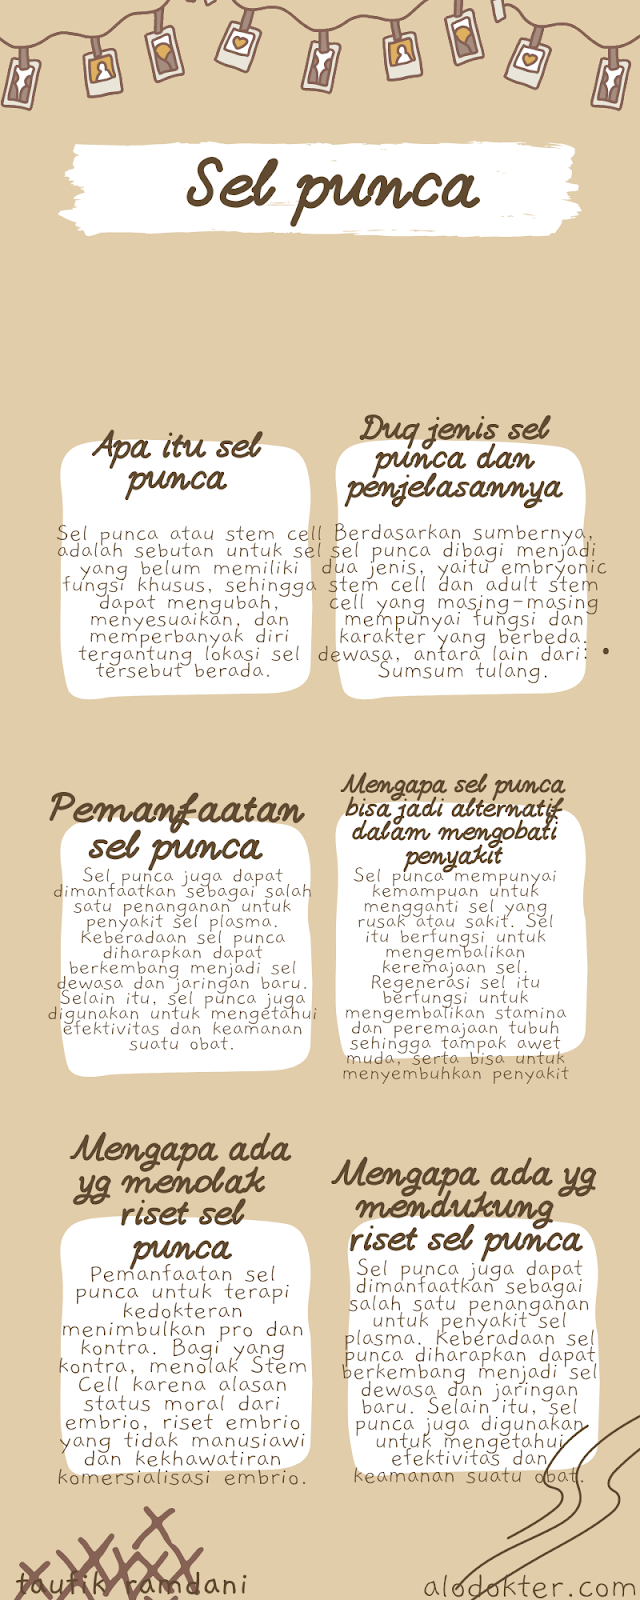 Sel punca
Apa itu sel
punca
Sel punca atau stem cell
adalah sebutan untuk sel
yang belum memiliki
fungsi khusus, sehingga
dapat mengubah,
menyesuaikan, dan
memperbanyak diri
tergantung lokasi sel
tersebut berada.
Duq jenis sel
punca dan
penjelasannya
Berdasarkan sumbernya,
sel punca dibagi menjadi
dua jenis, yaitu embryonic
stem cell dan adult stem
cell yang masing-masing
mempunyai fungsi dan
karakter yang berbeda.
dewasa, antara lain dari: •
Sumsum tulang.
Pemanfaatan
sel punca
Sel punca juga dapat
dimanfaatkan sebagai salah
satu penanganan untuk
penyakit sel plasma.
Keberadaan sel punca
diharapkan dapat
berkembang menjadi sel
dewasa dan jaringan baru.
Selain itu, sel punca juga
digunakan untuk mengetahui
efektivitas dan keamanan
suatu obat.
Mengapa sel punca
bisa jadi alternatif
dalam mengobati
penyakit
Sel punca mempunyai
kemampuan untuk
mengganti sel yang
rusak atau sakit. Sel
itu berfungsi untuk
mengembalikan
keremajaan sel.
Regenerasi sel itu
berfungsi untuk
mengembalikan stamina
dan peremajaan tubuh
sehingga tampak awet
muda, serta bisa untuk
menyembuhkan penyakit
Mengapa ada
yg menolak
riset sel
punca
Pemanfaatan sel
punca untuk terapi
kedokteran
menimbulkan pro dan
kontra. Bagi yang
kontra, menolak Stem
Cell karena alasan
status moral dari
embrio, riset embrio
yang tidak manusiawi
dan kekhawatiran
komersialisasi embrio.
Mengapa ada yg
mendukung
riset sel punca
Sel punca juga dapat
dimanfaatkan sebagai
salah satu penanganan
untuk penyakit sel
plasma. Keberadaan sel
punca diharapkan dapat
berkembang menjadi sel
dewasa dan jaringan
baru. Selain itu, sel
punca juga digunakan
untuk mengetahui
efektivitas dan
keamanan suatu obat.
taufik ramdani
alodokter.com